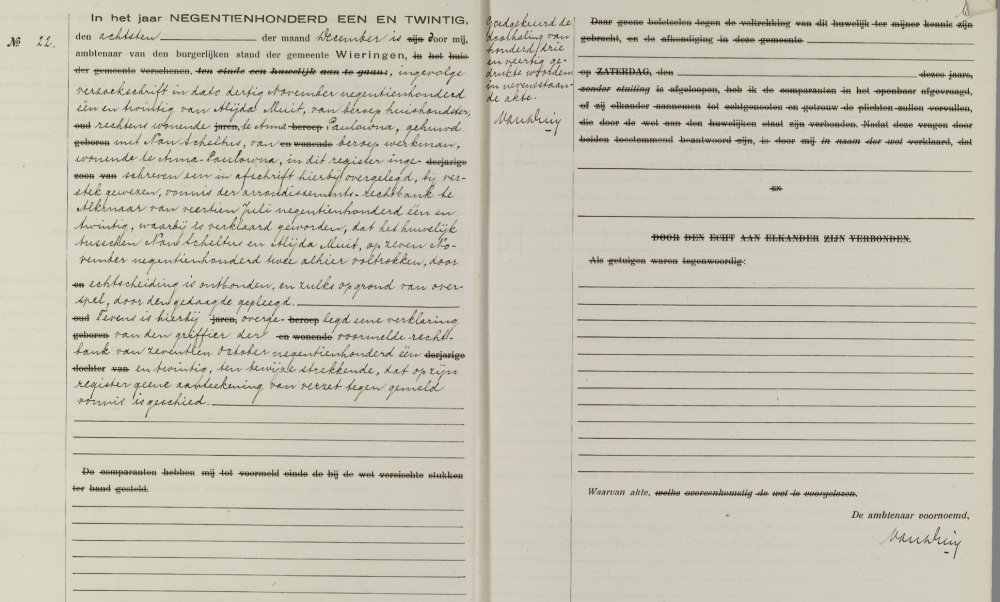 In het jaar NEGENTIENHONDERD EEN EN TWINTIG,
№ 22.
den achtsten der maand December is zijn door mij,
ambtenaar van den burgerlijken stand der gemeente Wieringen, in het huis
der gemeente verschenen, ten einde een huwelijk aan te gaan:, ingevolge
verzoekschrift in dato dertig November negentienhonderd
één en twintig van Alijda Muit, van beroep huishoudster,
oud rechtens wonende jaren, te Anna beroep Paulowna, gehuwd
geboren met Nan Scheltus, van en wonende beroep werkman,
wonende te Anna-Paulowna, in dit register inge- derjarige
zoon van schreven een in afschrift hierbij overgelegd, bij ver-
stek gewezen, vonnis der arrondissements-rechtbank te
Alkmaar van veertien Juli negentienhonderd één en
twintig, waarbij is verklaard geworden, dat het huwelijk
tusschen Nan Scheltus en Alijda Muit, op zeven No-
vember negentienhonderd twee alhier voltrokken, door
en echtscheiding is ontbonden, en zulks op grond van over-
spel, door den gedaagde gepleegd.
oud Tevens is hierbij jaren, overge- beroep legd eene verklaring
geboren van den griffier der en wonende voormelde recht-
bank van zeventien October negentienhonderd één derjarige
dochter van en twintig, ten bewijze strekkende, dat op zijn
register geene aanteekening van verzet tegen gemeld
vonnis is geschied.
De comparanten hebben mij tot voormeld einde de bij de wet vereischte stukken
ter hand gesteld.
Goedgekeurd de
doorhaling van
honderd drie
en veertig ge-
drukte woorden
in nevenstaan-
de akte.
Daar geene beletselen tegen de voltrekking van dit huwelijk ter mijner kennis zijn
gebracht, en de afkondiging in deze gemeente
op ZATERDAG, den dezes jaars,
zonder stuiting is afgeloopen, heb ik de comparanten in het openbaar afgevraagd,
of zij elkander aannemen tot echtgenooten en getrouw de plichten zullen vervullen,
die door de wet aan den huwelijken staat zijn verbonden. Nadat deze vragen door
beiden toestemmend beantwoord zijn, is door mij in naam der wet verklaard, dat
EN
DOOR DEN ECHT AAN ELKANDER ZIJN VERBONDEN.
Als getuigen waren tegenwoordig:
Waarvan akte, welke overeenkomstig de wet is voorgelezen.
De ambtenaar voornoemd,